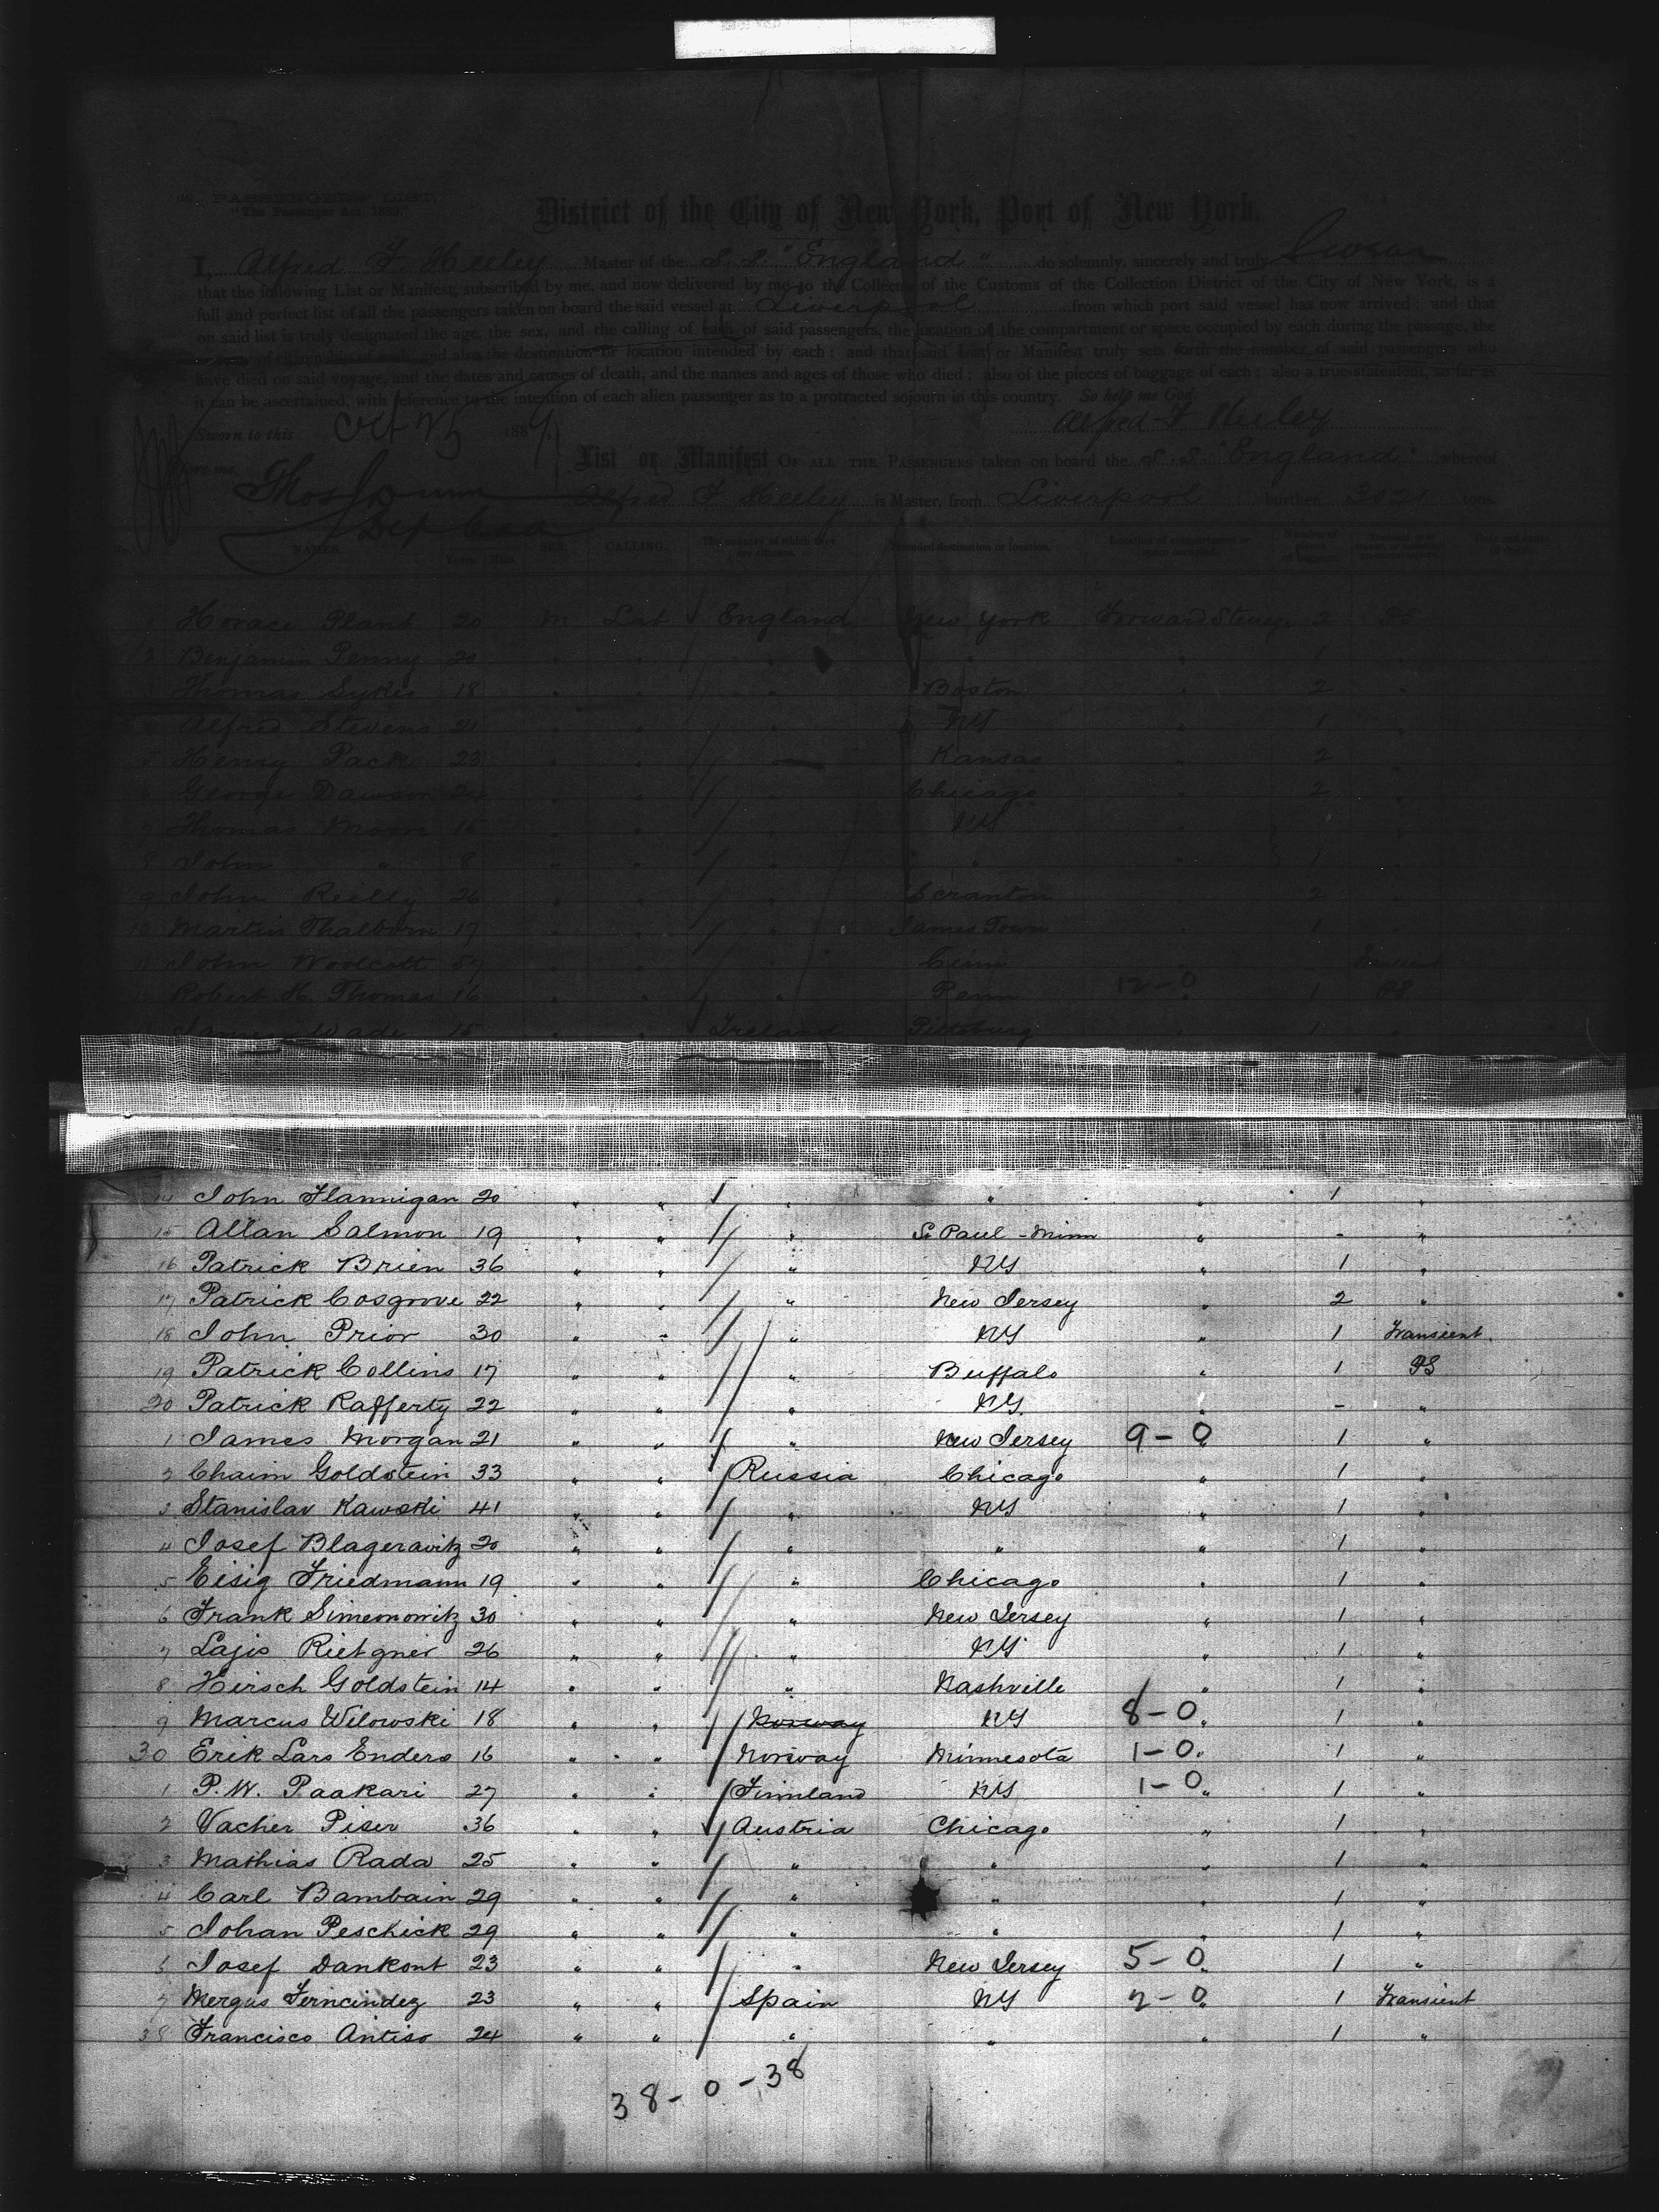 PASSENGERS' LIST.
"The Passenger Act, 1882.
District of the City of New York, Port of New York.
I, Alfred F. Heeley Master of the S.S. "England" do solemnly, sincerely and truly Swear
that the following List or Manifest, subscribed by me, and now delivered by me to the Collector of the Customs of the Collection District of the City of New York, is a
full and perfect list of all the passengers taken on board the said vessel at Liverpool from which port said vessel has now arrived; and that
on said list is truly designated the age, the sex, and the calling of each of said passengers, the location of the compartment or space occupied by each during the passage, the
of citizenship of each, and also the destination or location intended by each; and that said List or Manifest truly sets forth the number of said passengers who
have died on said voyage, and the dates and causes of death, and the names and ages of those who died; also of the pieces of baggage of each; also a true statement, so far as
it can be ascertained, with reference to the intention of each alien passenger as to a protracted sojourn in this country. So help me God.
Sworn to this Oct 25 1889 Alfred F Heeley
before me, List or Manifest OF ALL THE PASSENGERS taken on board the S.S. "England" whereof
Alfred F Heeley is Master, from Liverpool burthen 3021 tons.
NAMES. Years. Mths. SEX. CALLING. The country of which they are citizens. Intended destination or location. Location of compartment or space occupied. Number of pieces of baggage.
1 Horace Plant 20 M Lab England New York Forward Steerge 2 PS
2 Benjamin Penny 20 " " " " " 1 "
3 Thomas Sykes 18 " " " Boston " 2 "
4 Alfred Stevens 21 " " " NY " 1 "
5 Henry Pack 23 " " " Kansas " 2 "
6 George Dawson 24 " " " Chicago " 2 "
7 Thomas Moon 15 " " " NY " "
8 John " 8 " " " " " 1 "
9 John Reilly 26 " " " Scranton " 2 "
10 Martin Thalborn 17 " " " James Town " 1 "
11 John Woolcott 57 " " " "
12 Robert H. Thomas 16 " " " Penn 12-0 1 PS
James Wade 15 " " Ireland Pittsburg " 1 "
14 John Flannigan 20 " " " " " 1 "
15 Allan Salmon 19 " " " St Paul - Minn " - "
16 Patrick Brien 36 " " " NY " 1 "
17 Patrick Cosgrove 22 " " " New Jersey " 2 "
18 John Prior 30 " " " NY " 1 Transient
19 Patrick Collins 17 " " " Buffalo " 1 PS
20 Patrick Rafferty 22 " " " NY. " - "
1 James Morgan 21 " " " New Jersey 9-0 " 1 "
2 Chaim Goldstein 33 " " Russia Chicago " 1 "
3 Stanislav Kawski 41 " " " NY " 1 "
4 Josef Blageravitz 20 " " " " " 1 "
5 Eisig Friedmann 19 " " " Chicago " 1 "
6 Frank Simeonowitz 30 " " " New Jersey " 1 "
7 Lajis Rietgner 26 " " " NY " 1 "
8 Hirsch Goldstein 14 " " " Nashville " 1 "
9 Marcus Wilowski 18 " " Norway NY 8-0 " 1 "
30 Erik Lars Enders 16 " " Norway Minnesota 1-0 " 1 "
1 P.W. Paakari 27 " " Finnland NY 1-0 " 1 "
2 Vacher Piser 36 " " Austria Chicago " 1 "
3 Mathias Rada 25 " " " " " 1 "
4 Carl Bambain 29 " " " " " 1 "
5 Johan Peschick 29 " " " " " 1 "
6 Josef Dankont 23 " " " New Jersey 5-0 " 1 "
7 Mergus Ferncindez 23 " " Spain NY 2-0 " 1 Transient
38 Francisco Antiso 24 " " " " " 1 "
38-0-38